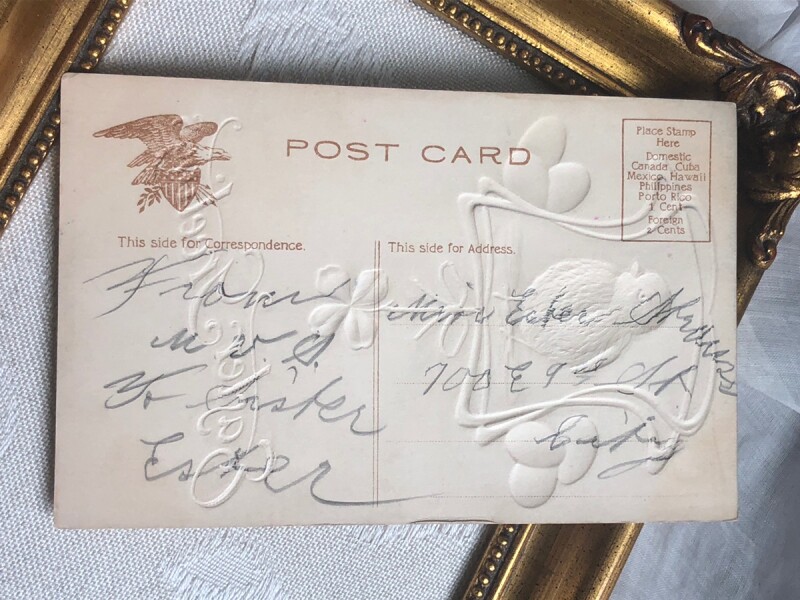 POST CARD
Place Stamp
Here
Domestic
Canada, Cuba
Mexico, Hawaii
Philippines
Porto Rico
1 Cent
Foreign
2 Cents
This side for Correspondence.
This side for Address.
From
M V S
To Sister
Ester
Miss Ester
700 E 9th St
City